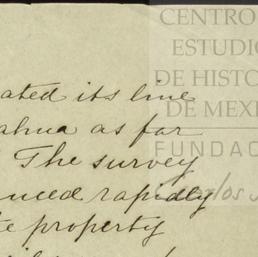 CENTRO
ESTUDIO
DE HISTO
DE MEXI
FUNDAC
ated its line
ahua as far
The survey
nced rapidly
te property